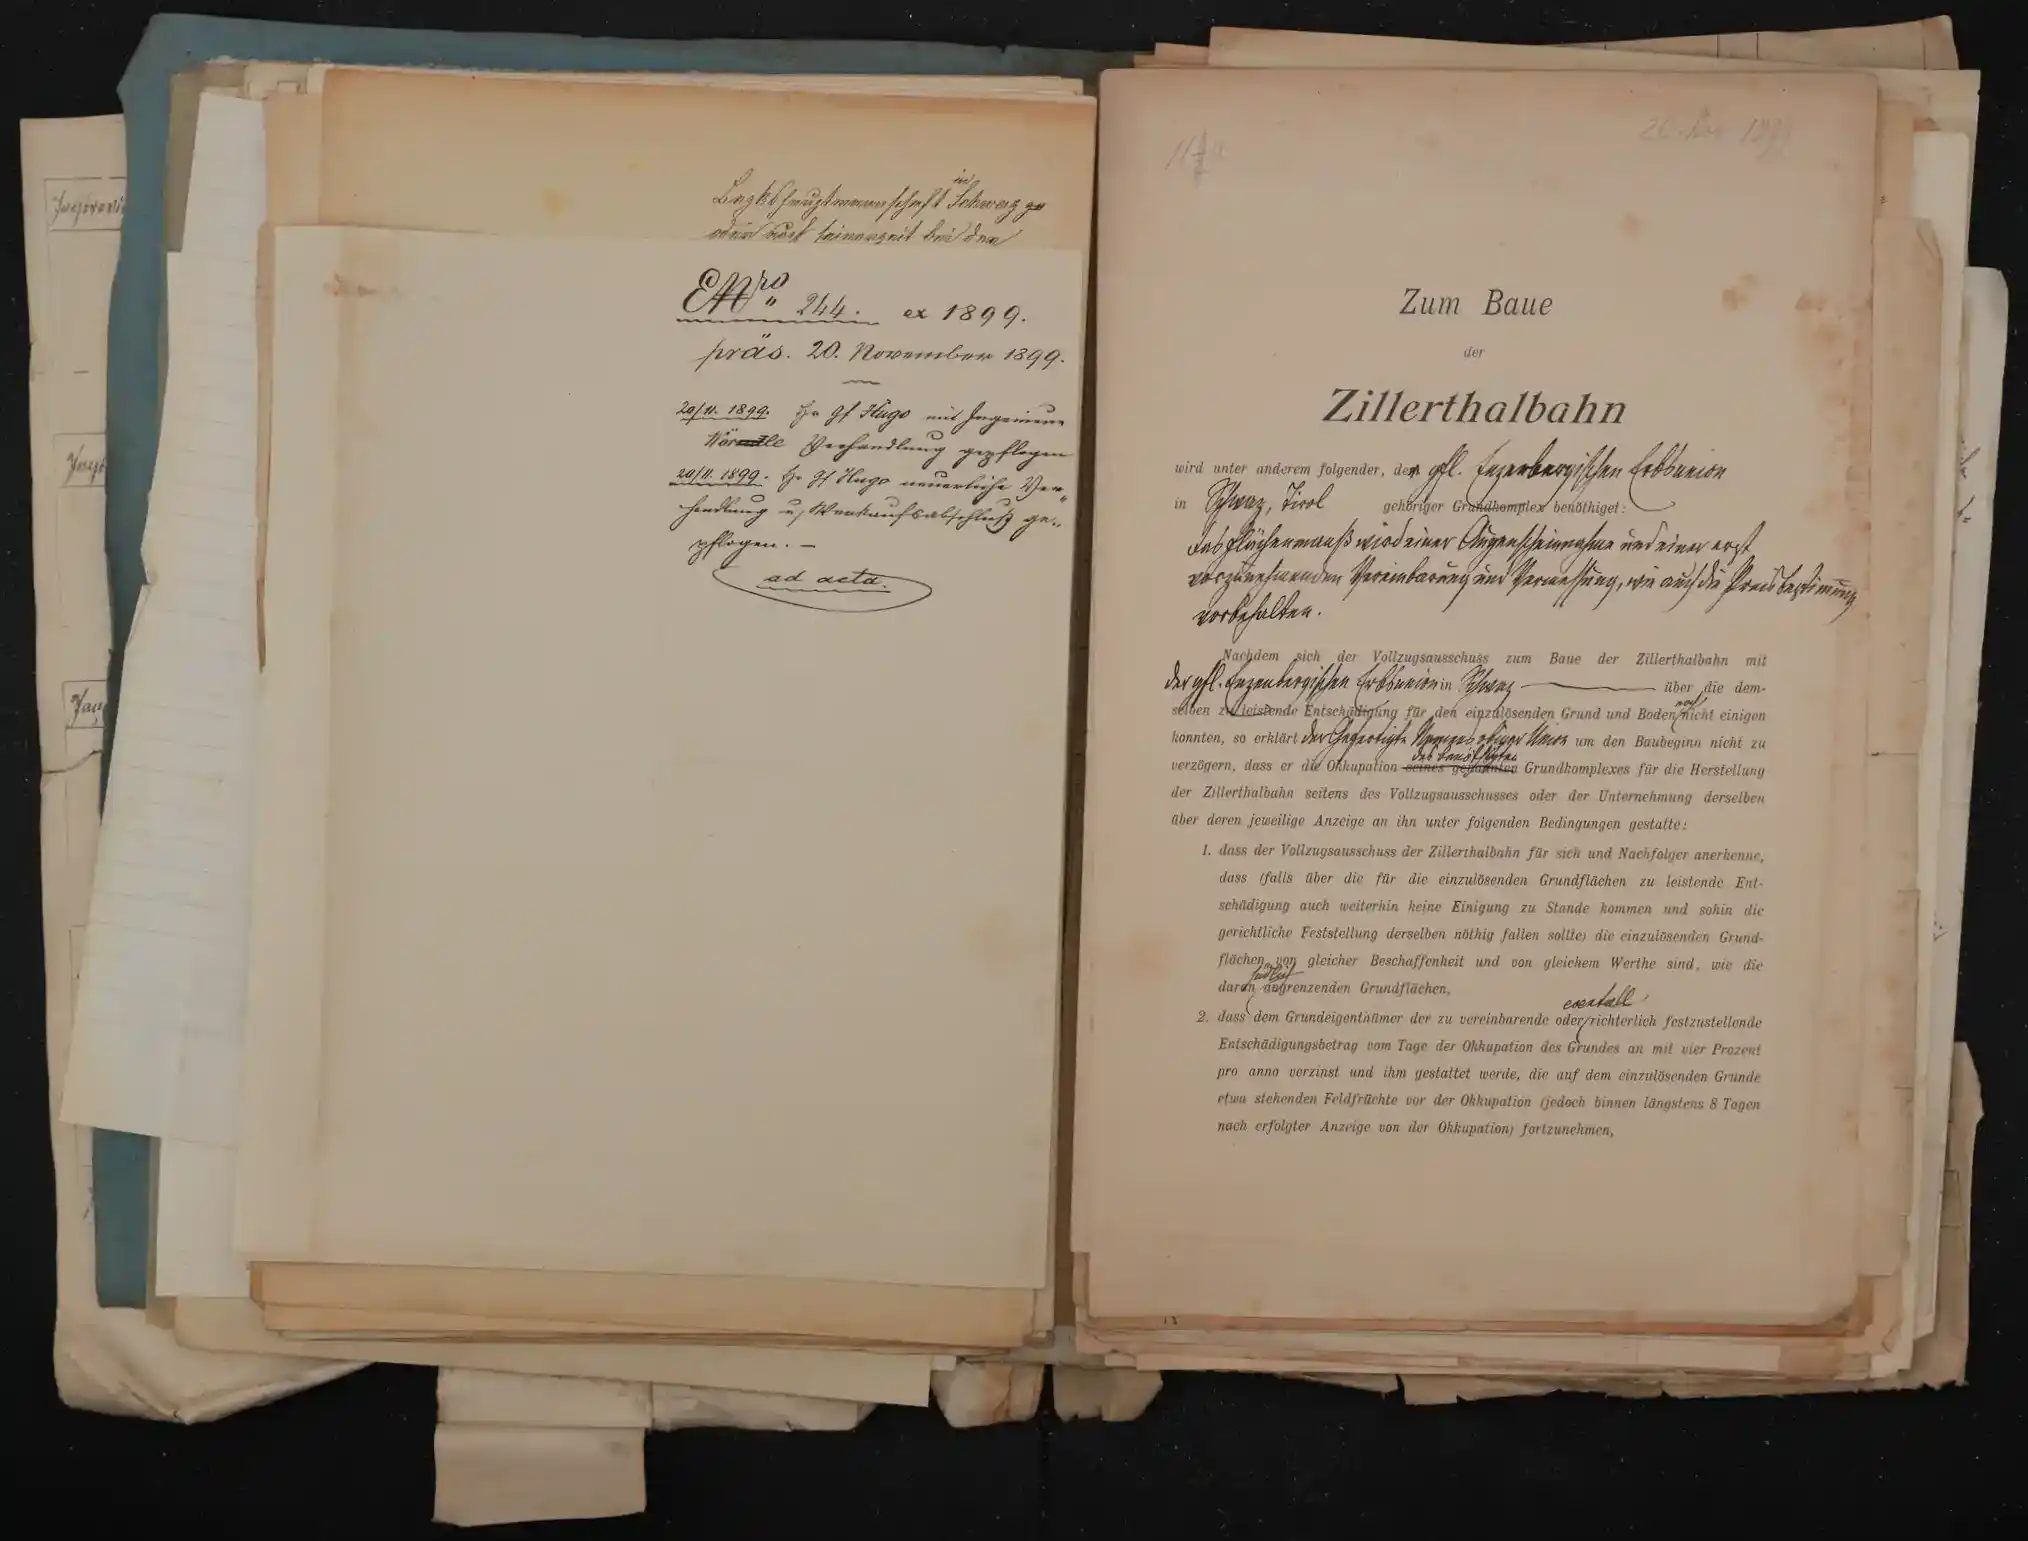 Bezkshauptmannschaft in Schwaz
oder auch seinerzeit bei der
ENro 244. ex 1899.
präs. 20. November 1899.
20/11. 1899. Hr Gf Hugo mit Ingenieur
Verhandlung gepflogen
20/11. 1899. Hr Gf Hugo neuerliche Ver„
handlung u, Verkaufsabschluß ge„
pflogen. –
ad acta.
1899
Zum Baue
der
Zillerthalbahn
wird unter anderem folgender, der gfl. Enzenbergischen Erbsunion
in Schwaz, Tirol gehöriger Grundkomplex benöthiget:
das Flächenmaß wird einer Augenscheinnahme und einer erst
vorzunehmenden Vereinbarung und Vermessung, wie auch die Preisbestimmung
vorbehalten.
Nachdem sich der Vollzugsausschuss zum Baue der Zillerthalbahn mit
der gfl. Enzenbergischen Erbsunion in Schwaz über die dem-
selben zu leistende Entschädigung für den einzulösenden Grund und Boden noch nicht einigen
konnten, so erklärt der Gefertigte Namens obiger Union um den Baubeginn nicht zu
verzögern, dass er die Okkupation seines genannten des benöthigten Grundkomplexes für die Herstellung
der Zillerthalbahn seitens des Vollzugsausschusses oder der Unternehmung derselben
über deren jeweilige Anzeige an ihn unter folgenden Bedingungen gestatte:
1. dass der Vollzugsausschuss der Zillerthalbahn für sich und Nachfolger anerkenne,
dass (falls über die für die einzulösenden Grundflächen zu leistende Ent-
schädigung auch weiterhin keine Einigung zu Stande kommen und sohin die
gerichtliche Feststellung derselben nöthig fallen sollte) die einzulösenden Grund-
flächen von gleicher Beschaffenheit und von gleichem Werthe sind, wie die
daran südlich angrenzenden Grundflächen,
2. dass dem Grundeigenthümer der zu vereinbarende oder eventuell richterlich festzustellende
Entschädigungsbetrag vom Tage der Okkupation des Grundes an mit vier Prozent
pro anno verzinst und ihm gestattet werde, die auf dem einzulösenden Grunde
etwa stehenden Feldfrüchte vor der Okkupation (jedoch binnen längstens 8 Tagen
nach erfolgter Anzeige von der Okkupation) fortzunehmen,